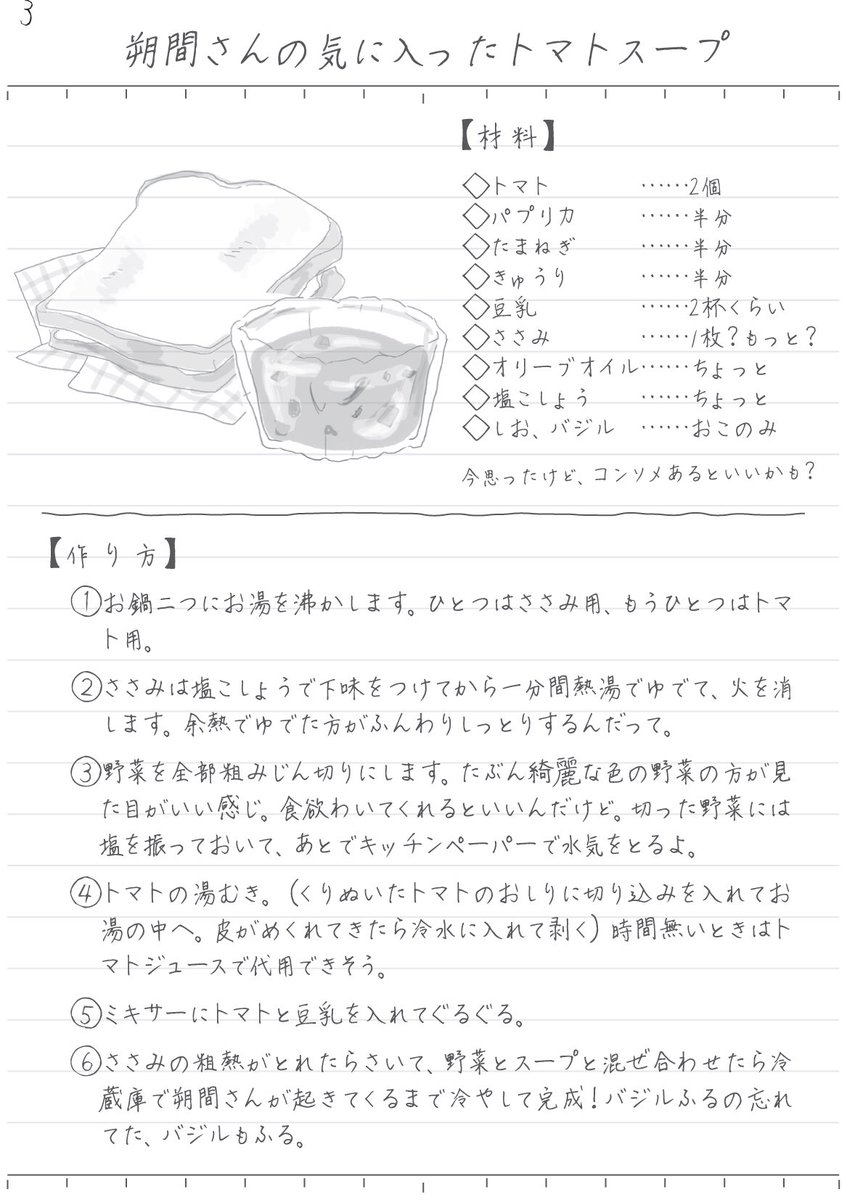 3
朔間さんの気に入ったトマトスープ
【材料】
◇トマト ……2個
◇パプリカ ……半分
◇たまねぎ ……半分
◇きゅうり ……半分
◇豆乳 ……2杯くらい
◇ささみ ……1枚?もっと?
◇オリーブオイル……ちょっと
◇塩こしょう ……ちょっと
◇しお、バジル ……おこのみ
今思ったけど、コンソメあるといいかも?
【作り方】
①お鍋二つにお湯を沸かします。ひとつはささみ用、もうひとつはトマ
ト用。
②ささみは塩こしょうで下味をつけてから一分間熱湯でゆでて、火を消
します。余熱でゆでた方がふんわりしっとりするんだって。
③野菜を全部粗みじん切りにします。たぶん綺麗な色の野菜の方が見
た目がいい感じ。食欲わいてくれるといいんだけど。切った野菜には
塩を振っておいて、あとでキッチンペーパーで水気をとるよ。
④トマトの湯むき。(くりぬいたトマトのおしりに切り込みを入れてお
湯の中へ。皮がめくれてきたら冷水に入れて剥く)時間無いときはト
マトジュースで代用できそう。
⑤ミキサーにトマトと豆乳を入れてぐるぐる。
⑥ささみの粗熱がとれたらさいて、野菜とスープと混ぜ合わせたら冷
蔵庫で朔間さんが起きてくるまで冷やして完成!バジルふるの忘れ
てた、バジルもふる。